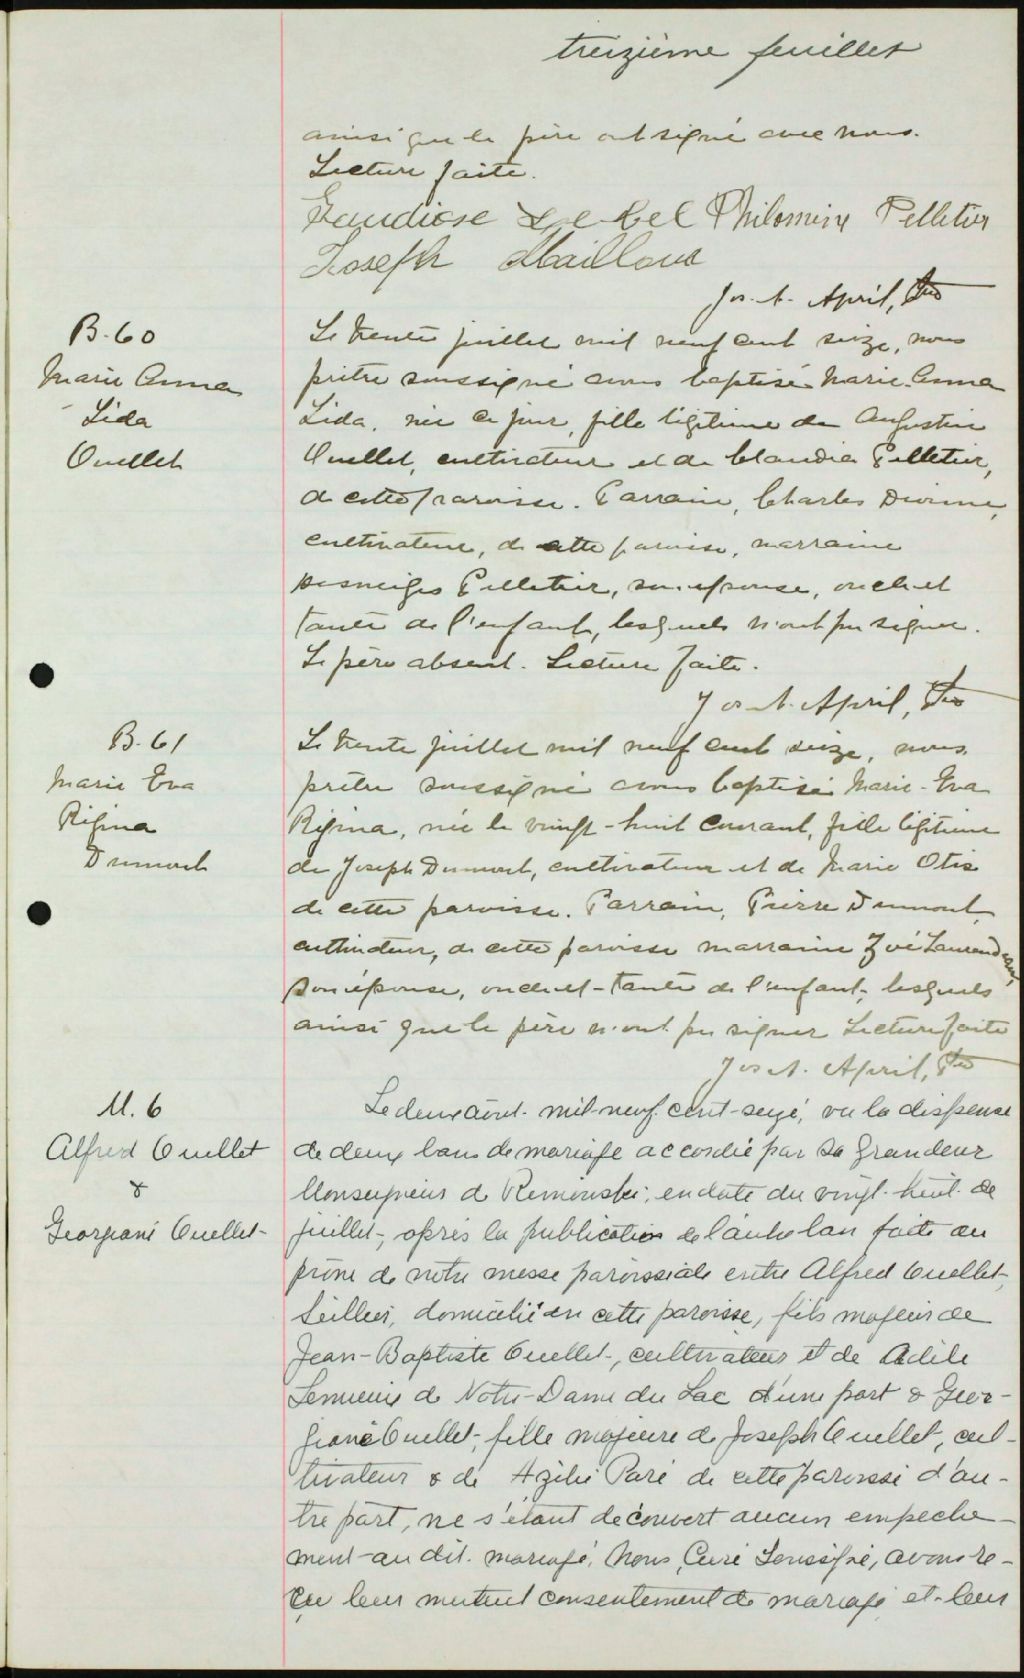 treizième feuillet
ainsi que le père ont signé avec nous.
Lecture faite.
Gaudiose Lebel Philomène Pelletier
Joseph Mailloux
Jos. A. April, Ptre
B. 60
Marie Anna
Lida
Ouellet
Le trente juillet mil neuf cent seize, nous
prêtre soussigné avons baptisé Marie-Anna
Lida, née ce jour, fille légitime de Augustin
Ouellet, cultivateur et de Claudia Pelletier,
de cette paroisse. Parrain, Charles
cultivateur, de cette paroisse, marraine
Desneiges Pelletier, son épouse, oncle et
tante de l'enfant, lesquels n'ont pu signer.
Le père absent. Lecture faite.
Jos. A. April, Ptre
B. 61
Marie Eva
Régina
Dumont
Le trente juillet mil neuf cent seize, nous
prêtre soussigné avons baptisé Marie-Eva
Régina, née le vingt-huit courant, fille légitime
de Joseph Dumont, cultivateur et de Marie Otis
de cette paroisse. Parrain, Pierre Dumont,
cultivateur, de cette paroisse marraine Zoé
son épouse, oncle et tante de l'enfant, lesquels
ainsi que le père n'ont pu signer Lecture faite
Jos A. April, Ptre
M. 6
Alfred Ouellet
&
Georgiane Ouellet
Le deux août mil-neuf-cent-seize, vu la dispense
de deux bans de mariage accordée par Sa Grandeur
Monseigneur de Rimouski, en date du vingt-huit de
juillet, après la publication de l'autre ban faite au
prône de notre messe paroissiale entre Alfred Ouellet,
sellier, domicilié en cette paroisse, fils majeur de
Jean-Baptiste Ouellet, cultivateur et de Adèle
Lemieux de Notre-Dame du Lac d'une part & Geor-
giane Ouellet, fille majeure de Joseph Ouellet, cul-
tivateur & de Azélie Paré de cette paroisse d'au-
tre part, ne s'étant découvert aucun empêche-
ment au dit mariage, Nous, Curé Soussigné, avons re-
çu leur mutuel consentement de mariage et leur